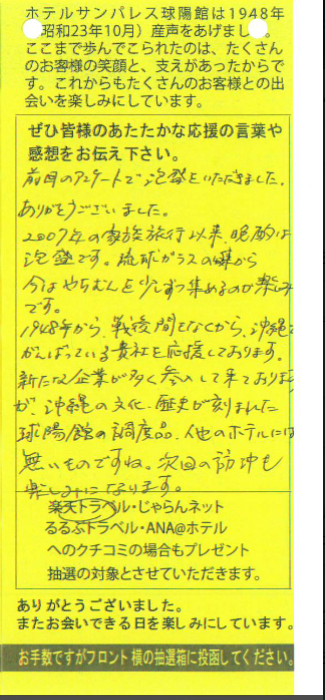 ホテルサンパレス球陽館は1948年
昭和23年10月）産声をあげまし
ここまで歩んでこられたのは、たくさん
のお客様の笑顔と、支えがあったからで
す。これからもたくさんのお客様との出
会いを楽しみにしています。
ぜひ皆様のあたたかな応援の言葉や
感想をお伝え下さい。
前回のアンケートで泡盛をいただきました。
ありがとうございました。
2007年の家族旅行以来、晩酌は
泡盛です。琉球ガラスの
今はやちむんを少しずつ集めるのが楽しみ
です。
1948年から、戦後間もなくから、沖縄で
がんばっている貴社を応援しております。
新たな企業が多く参入して来ております
が、沖縄の文化・歴史が刻まれた
球陽館の調度品、他のホテルには
無いものですね。次回の訪沖も
楽しみになります。
楽天トラベル・じゃらんネット
るるぶトラベル・ANA@ホテル
へのクチコミの場合もプレゼント
抽選の対象とさせていただきます。
ありがとうございました。
またお会いできる日を楽しみにしています。
お手数ですがフロント横の抽選箱に投函してください。